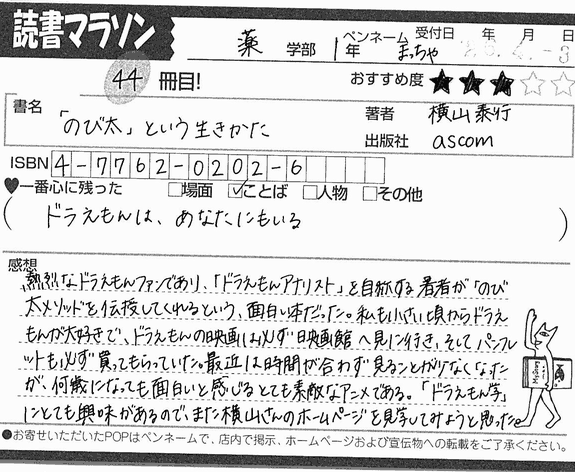 読書マラソン
薬 学部 1年 ペンネーム まっちゃ 受付日 年 月 日
44 冊目! おすすめ度 ★★★☆☆
書名 「のび太」という生きかた
著者 横山泰行
出版社 ascom
ISBN 4-7762-0202-6
♥一番心に残った □場面 ☑ことば □人物 □その他
(ドラえもんは、あなたにもいる)
感想
熱烈なドラえもんファンであり、「ドラえもんアナリスト」を自称する著者が「のび
太メソッド」を伝授してくれるという、面白い本だった。私も小さい頃からドラえ
もんが大好きで、ドラえもんの映画は必ず映画館へ見に行き、そしてパンフレ
ットも必ず買ってもらっていた。最近は時間が合わず見ることが少なくなった
が、何歳になっても面白いと感じるとても素敵なアニメである。「ドラえもん学」
にとても興味があるので、また横山さんのホームページを見学してみようと思った。
●お寄せいただいたPOPはペンネームで、店内で掲示、ホームページおよび宣伝物への転載をご了承ください。